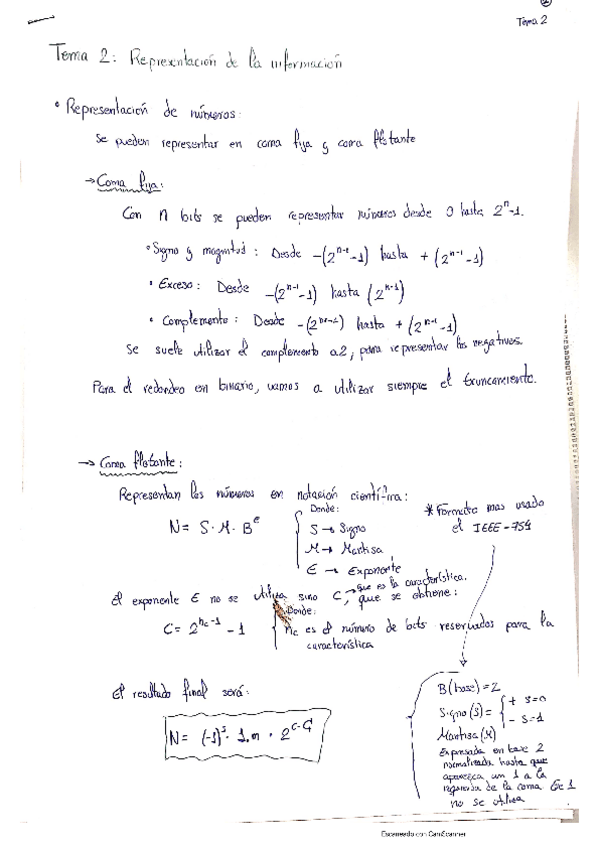 Tema 2
Tema 2: Representación de la información
• Representación de números:
Se pueden representar en coma fija y coma flotante
→ Coma fija:
Con n bits se pueden representar números desde 0 hasta 2^n-1.
• Signo y magnitud: Desde -(2^{n-1}-1) hasta +(2^{n-1}-1)
• Exceso: Desde -(2^{n-1}-1) hasta (2^{n-1})
• Complemento: Desde hasta +(2^{n-1}-1)
Se suele utilizar el complemento a2, para representar los negativos.
Para el redondeo en binario, vamos a utilizar siempre el truncamiento.
→ Coma flotante:
Representan los números en notación científica:
N = S·M·B^e
Donde:
S → Signo
M → Mantisa
E → Exponente
* Formato mas usado
el IEEE-754
El exponente E no se utiliza sino C, que se obtiene:
→ que es la característica.
C = 2^{n_c-1} - 1
Donde:
n_c es el número de bits reservados para la
característica
El resultado final será:
N = (-1)^s · 1.m · 2^{C-}
B (base) = 2
Signo (S) = { + S=0
- S=1
Mantisa (M)
Expresada en base 2
normalizada hasta que
aparezca un 1 a la
izquierda de la coma 1
no se utiliza
Escaneado con CamScanner